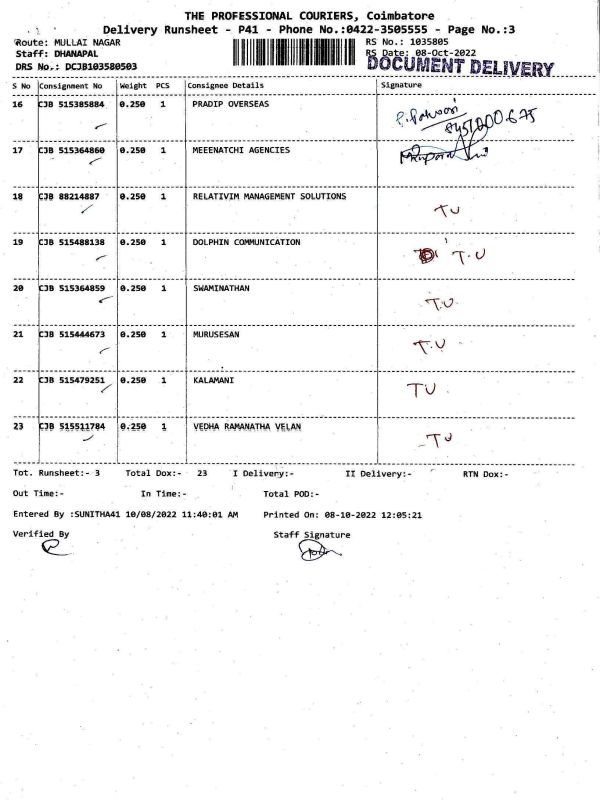 THE PROFESSIONAL COURIERS, Coimbatore
Delivery Runsheet - P41 - Phone No.:0422-3505555 - Page No.:3
Route: MULLAI NAGAR RS No.: 1035805
Staff: DHANAPAL RS Date: 08-Oct-2022
DRS No.: DCJB103580503 DOCUMENT DELIVERY
S No Consignment No Weight PCS Consignee Details Signature
16 CJB 515385884 0.250 1 PRADIP OVERSEAS
17 CJB 515364860 0.250 1 MEEENATCHI AGENCIES
18 CJB 88214887 0.250 1 RELATIVIM MANAGEMENT SOLUTIONS TU
19 CJB 515488138 0.250 1 DOLPHIN COMMUNICATION T.U
20 CJB 515364859 0.250 1 SWAMINATHAN T.U.
21 CJB 515444673 0.250 1 MURUSESAN T.U
22 CJB 515479251 0.250 1 KALAMANI TU.
23 CJB 515511784 0.250 1 VEDHA RAMANATHA VELAN TU
Tot. Runsheet:- 3 Total Dox:- 23 I Delivery:- II Delivery:- RTN Dox:-
Out Time:- In Time:- Total POD:-
Entered By :SUNITHA41 10/08/2022 11:40:01 AM Printed On: 08-10-2022 12:05:21
Verified By Staff Signature